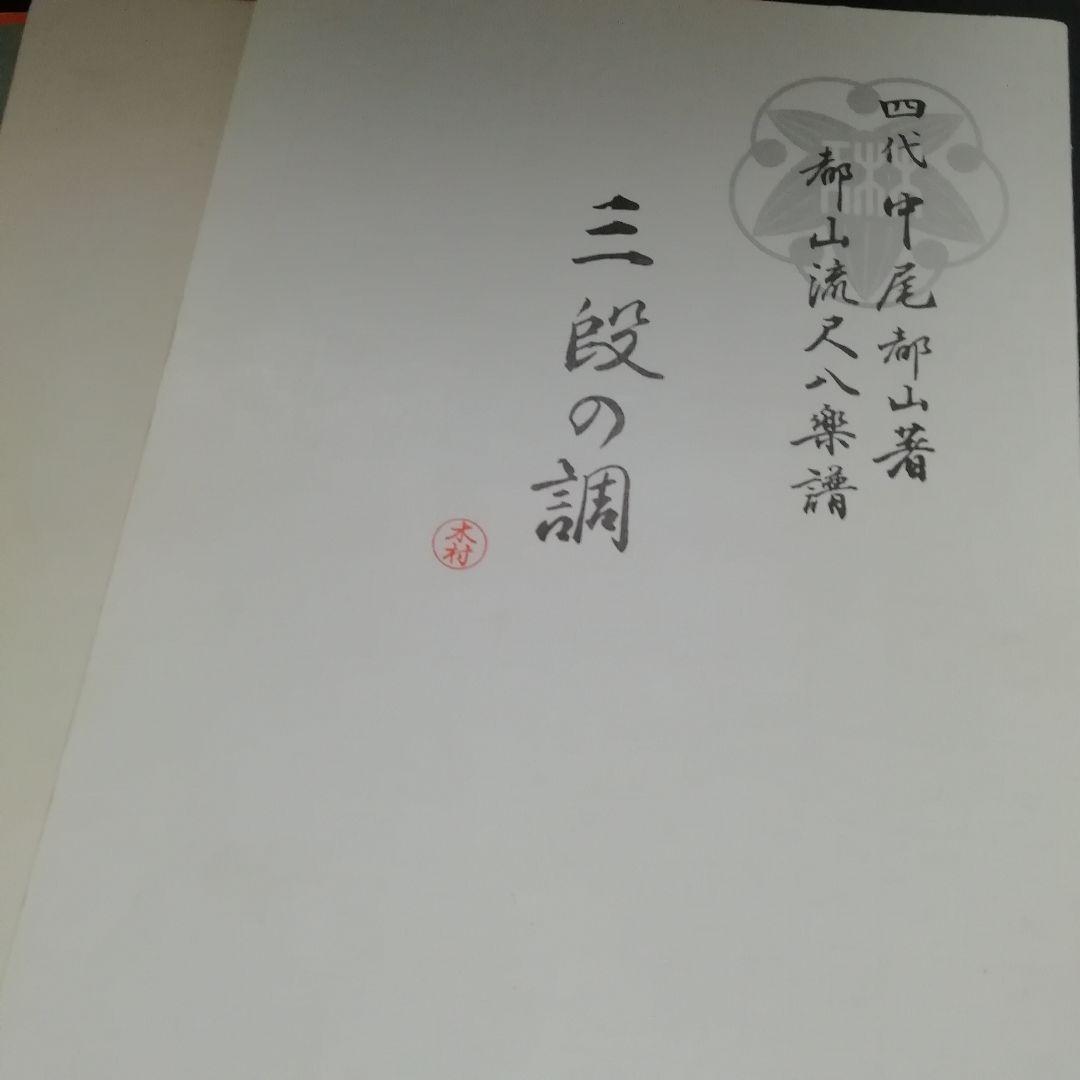 四代 中尾都山著
都山流尺八楽譜
三段の調
木村